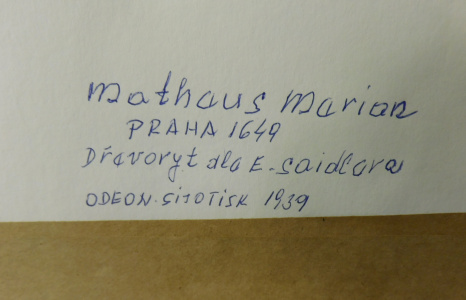 Mathaus Marian
PRAHA 1649
Dřevoryt dla E. Saidlera
ODEON-SITOTISK 1939